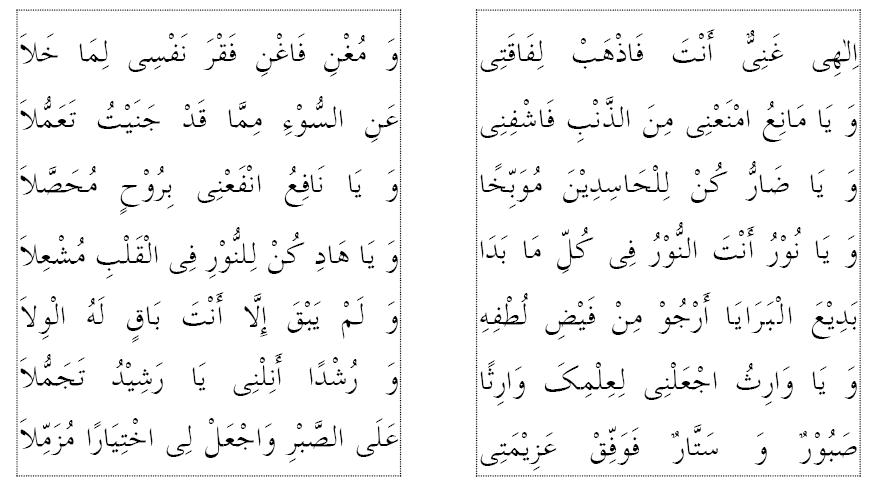 اِلٰهِی غَنِیٌّ أَنْتَ فَاذْهَبْ لِفَاقَتِی
وَ مُغْنِ فَاغْنِ فَقْرَ نَفْسِی لِمَا خَلاَ
وَ یَا مَانِعُ امْنَعْنِی مِنَ الذَّنْبِ فَاشْفِنِی
عَنِ السُّوْءِ مِمَّا قَدْ جَنَیْتُ تَعَمُّلاَ
وَ یَا ضَارُّ کُنْ لِلْحَاسِدِیْنَ مُوَبِّخًا
وَ یَا نَافِعُ انْفَعْنِی بِرُوْحٍ مُحَصَّلاَ
وَ یَا نُوْرُ أَنْتَ النُّوْرُ فِی کُلِّ مَا بَدَا
وَ یَا هَادِ کُنْ لِلنُّوْرِ فِی الْقَلْبِ مُشْعِلاَ
بَدِیْعَ الْبَرَایَا أَرْجُوْ مِنْ فَیْضِ لُطْفِهِ
وَ لَمْ یَبْقَ إِلَّا أَنْتَ بَاقٍ لَهُ الْوِلاَ
وَ یَا وَارِثُ اجْعَلْنِی لِعِلْمِکَ وَارِثًا
وَ رُشْدًا أَنِلْنِی یَا رَشِیْدُ تَجَمُّلاَ
صَبُوْرٌ وَ سَتَّارٌ فَوَفِّقْ عَزِیْمَتِی
عَلَی الصَّبْرِ وَاجْعَلْ لِی اخْتِیَارًا مُزَمِّلاَ